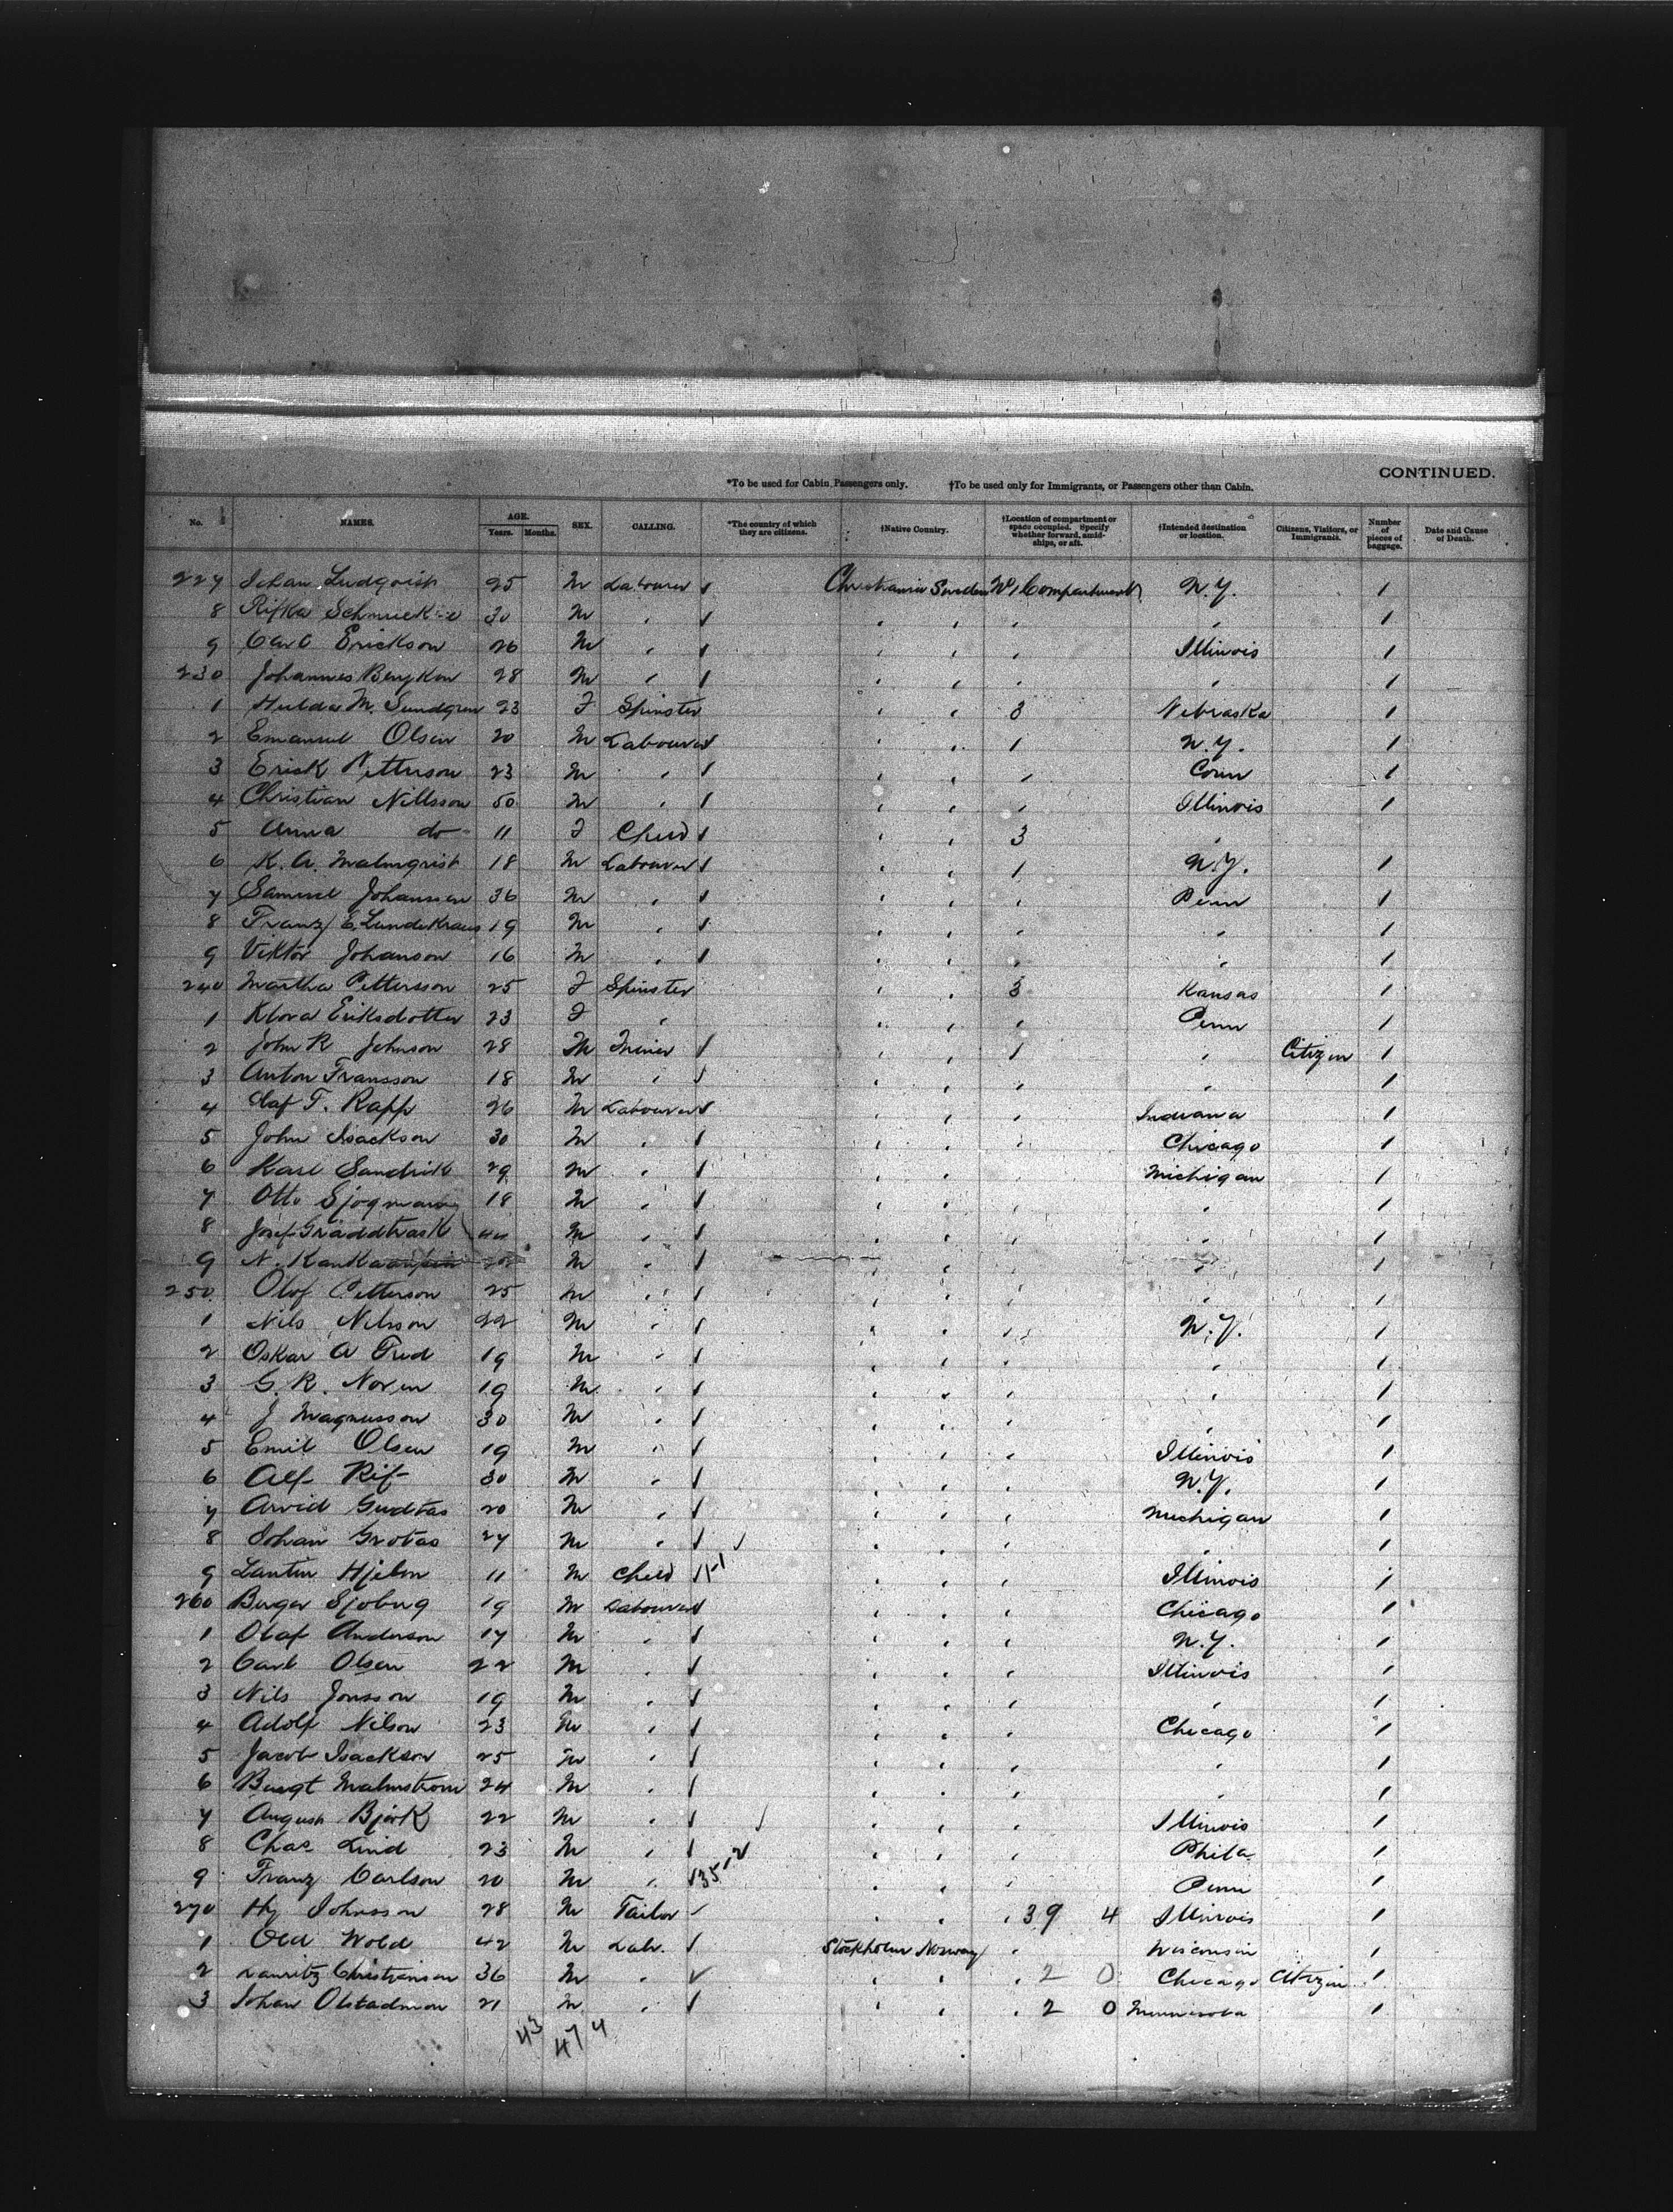 CONTINUED.
*To be used for Cabin Passengers only. †To be used only for Immigrants, or Passengers other than Cabin.
No. NAMES. AGE. Years. Months. SEX. CALLING. *The country of which they are citizens. †Native Country. †Location of compartment or space occupied. Specify whether forward, amidships, or aft. †Intended destination or location. Citizens, Visitors, or Immigrants. Number of pieces of baggage. Date and Cause of Death.
227 Johan Ludqvist 25 M Labourer Christiania Sweden No 1 Compartment N.Y. 1
8 Rifka 30 M " " " " " 1
9 Carl Erickson 26 M " " " " Illinois 1
230 Johannes 28 M " " " " " 1
1 Hulda M. Sundgren 23 F Spinster " " 3 Nebraska 1
2 Emanuel Olsen 20 M Labourer " " 1 N.Y. 1
3 Erick Petterson 23 M " " " " Conn 1
4 Christian Nillsson 50 M " " " " Illinois 1
5 Anna do 11 F Child " " 3 "
6 K. A. Malmqvist 18 M Labourer " " 1 N.Y. 1
7 Samuel Johansson 36 M " " " " Penn 1
8 Franz E. 19 M " " " " " 1
9 Viktor Johanson 16 M " " " " " 1
240 Martha Pettersson 25 F Spinster " " 3 Kansas 1
1 Eriksdotter 23 F " " " " Penn 1
2 John R Johnson 28 M Miner " " 1 " Citizen 1
3 Anton Fransson 18 M " " " " " 1
4 Olaf T. Rapp 26 M Labourer " " " Indiana 1
5 John Isackson 30 M " " " " Chicago 1
6 Karl 29 M " " " " Michigan 1
7 Otto 18 M " " " " " 1
8 Josef Gräddtrask 44 M " " " " " 1
9 N. M " " " " " 1
250 Olof Petterson 25 M " " " " " 1
1 Nils Nilsson 22 M " " " " N.Y. 1
2 Oskar A 19 M " " " " " 1
3 G. R. Noren 19 M " " " " " 1
4 J Magnusson 30 M " " " " " 1
5 Emil Olsen 19 M " " " " Illinois 1
6 Alf Rif 30 M " " " " N.Y. 1
7 Arvid 20 M " " " " Michigan 1
8 Johan Grotas 27 M " " " " " 1
9 Hjelm 11 M Child " " " Illinois 1
260 Birger Sjoberg 19 M Labourer " " " Chicago 1
1 Olaf Anderson 17 M " " " " N.Y. 1
2 Carl Olsen 22 M " " " " Illinois 1
3 Nils Jonsson 19 M " " " " " 1
4 Adolf Nilson 23 M " " " " Chicago 1
5 Jacob Isackson 25 M " " " " " 1
6 Bengt Malmstrom 24 M " " " " " 1
7 August Bjork 22 M " " " " Illinois 1
8 Chas Lind 23 M " " " " Phila 1
9 Franz Carlson 20 M " 35 " " " Penn 1
270 Hy Johnsson 28 M Tailor " " " 39 4 Illinois 1
1 Wold 42 M Labr. Stockholm Norway " Wisconsin 1
2 Lauritz Christianson 36 M " " " " 2 0 Chicago Citizen 1
3 Johan Olstadmon 21 M " " " " 2 0 Minnesota 1
43 47 4